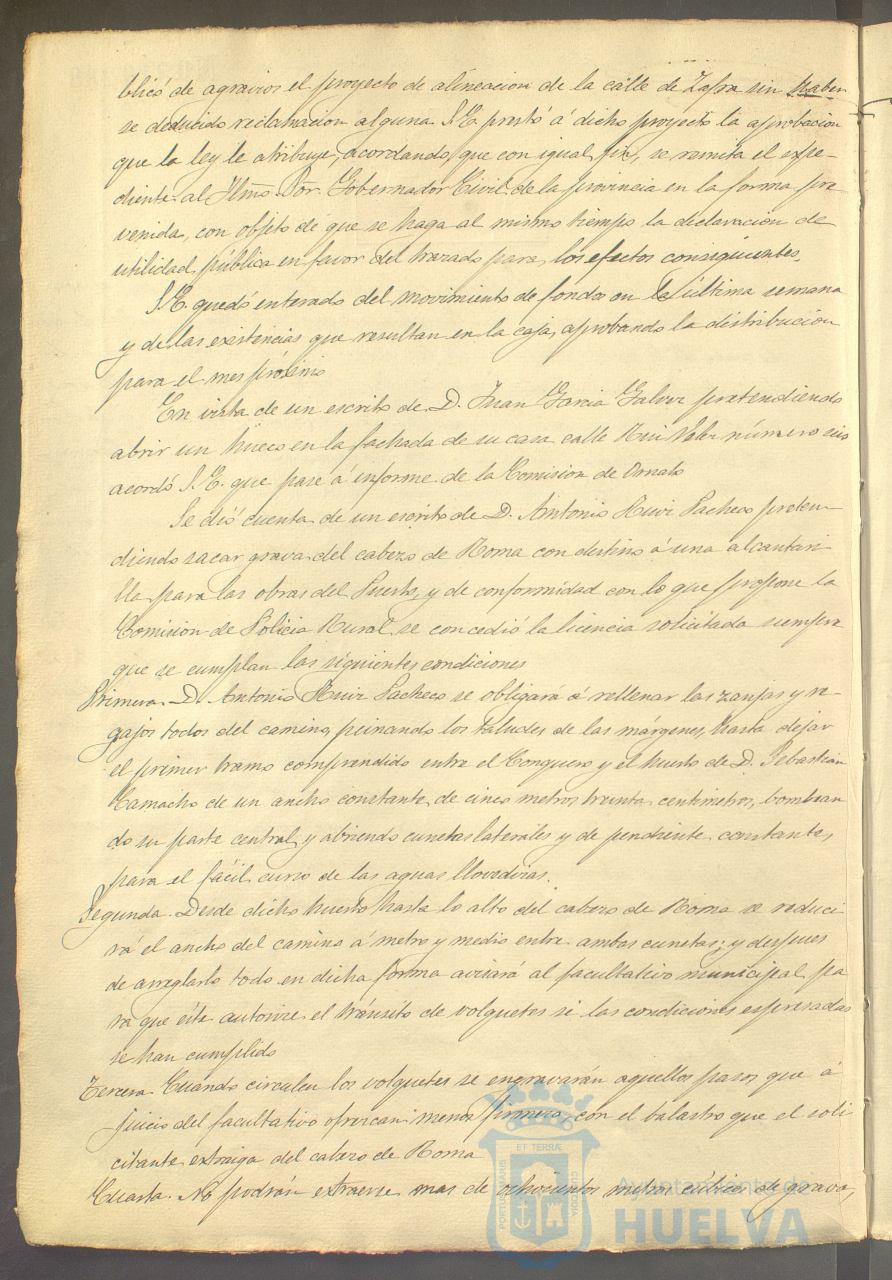 blicó de agravios el proyecto de alineacion de la calle de Zafra sin haber
se deducido reclamacion alguna S.E. prestó á dicho proyecto la aprobacion
que la ley le atribuye, acordando, que con igual fin, se remita el espe-
diente al Iltmo. Sor. Gobernador Civil de la provincia en la forma pre
venida, con objeto de que se haga al mismo tiempo la declaracion de
utilidad pública en favor del trazado para los efectos consiguientes.
S.E. quedó enterado del movimiento de fondos en la última semana
y de las existencias que resultan en la caja, aprobando la distribucion
para el mes próximo
En vista de un escrito de D. Juan Garcia Galvez pretendiendo
abrir un hueco en la fachada de su casa calle Rui Velez número seis
acordó S.E. que pase á informe de la Comision de Ornato
Se dió cuenta de un escrito de D. Antonio Ruiz Pacheco preten-
diendo sacar grava del cabezo de Roma con destino á una alcantari
lla para las obras del Puerto, y de conformidad con lo que propone la
Comision de Policia Rural se concedió la licencia solicitada siempre
que se cumplan las siguientes condiciones
Primera. D. Antonio Ruiz Pacheco se obligará á rellenar las zanjas y re-
gajos todos del camino, peinando los taludes de las márgenes, hasta dejar
el primer tramo comprendido entre el Conquero y el huerto de D. Sebastian
Camacho de un ancho constante de cinco metros treinta centimetros, bombean
do su parte central, y abriendo cunetas laterales y de pendiente constante,
para el fácil curso de las aguas llovedizas.
Segunda. Desde dicho huerto hasta lo alto del cabezo de Roma se reduci
rá el ancho del camino á metro y medio entre ambas cunetas; y despues
de arreglarlo todo en dicha forma avisará al facultativo municipal pa
ra que éste autorize el tránsito de volquetes si las condiciones espresadas
se han cumplido
Tercera. Cuando circulen los volquetes se engravarán aquellos pasos que á
juicio del facultativo ofrezcan menor firmeza, con el balastro que el soli
citante extraiga del cabezo de Roma
Cuarta. No podrán extraerse mas de ochocientos metros cúbicos de grava,
ET TERRÆ
PORTUS MARIS
CUSTODIA
Ayuntamiento de
HUELVA